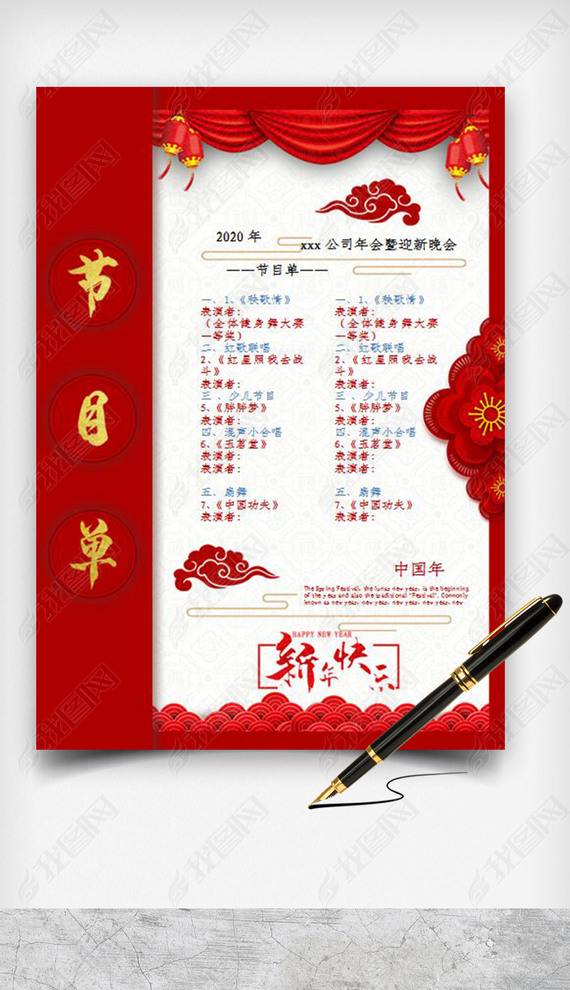 节
目
单
2020 年
xxx 公司年会暨迎新晚会
——节目单——
一、1、《秧歌情》
表演者：
（全体健身舞大赛
一等奖）
二、红歌联唱
2、《红星照我去战
斗》
表演者：
三 、少儿节目
5、《胖胖梦》
四、混声小合唱
6、《玉茗堂》
表演者：
表演者：
五、扇舞
7、《中国功夫》
表演者：
一、1、《秧歌情》
表演者：
（全体健身舞大赛
一等奖）
二、红歌联唱
2、《红星照我去战
斗》
表演者：
三 、少儿节目
5、《胖胖梦》
四、混声小合唱
6、《玉茗堂》
表演者：
表演者：
五、扇舞
7、《中国功夫》
表演者：
中国年
The Spring Festival, the lunar new year, is the beginning
of the year and also the traditional "Festival". Commonly
known as new year, new year, new year, new year, new
HAPPY NEW YEAR
新年快乐